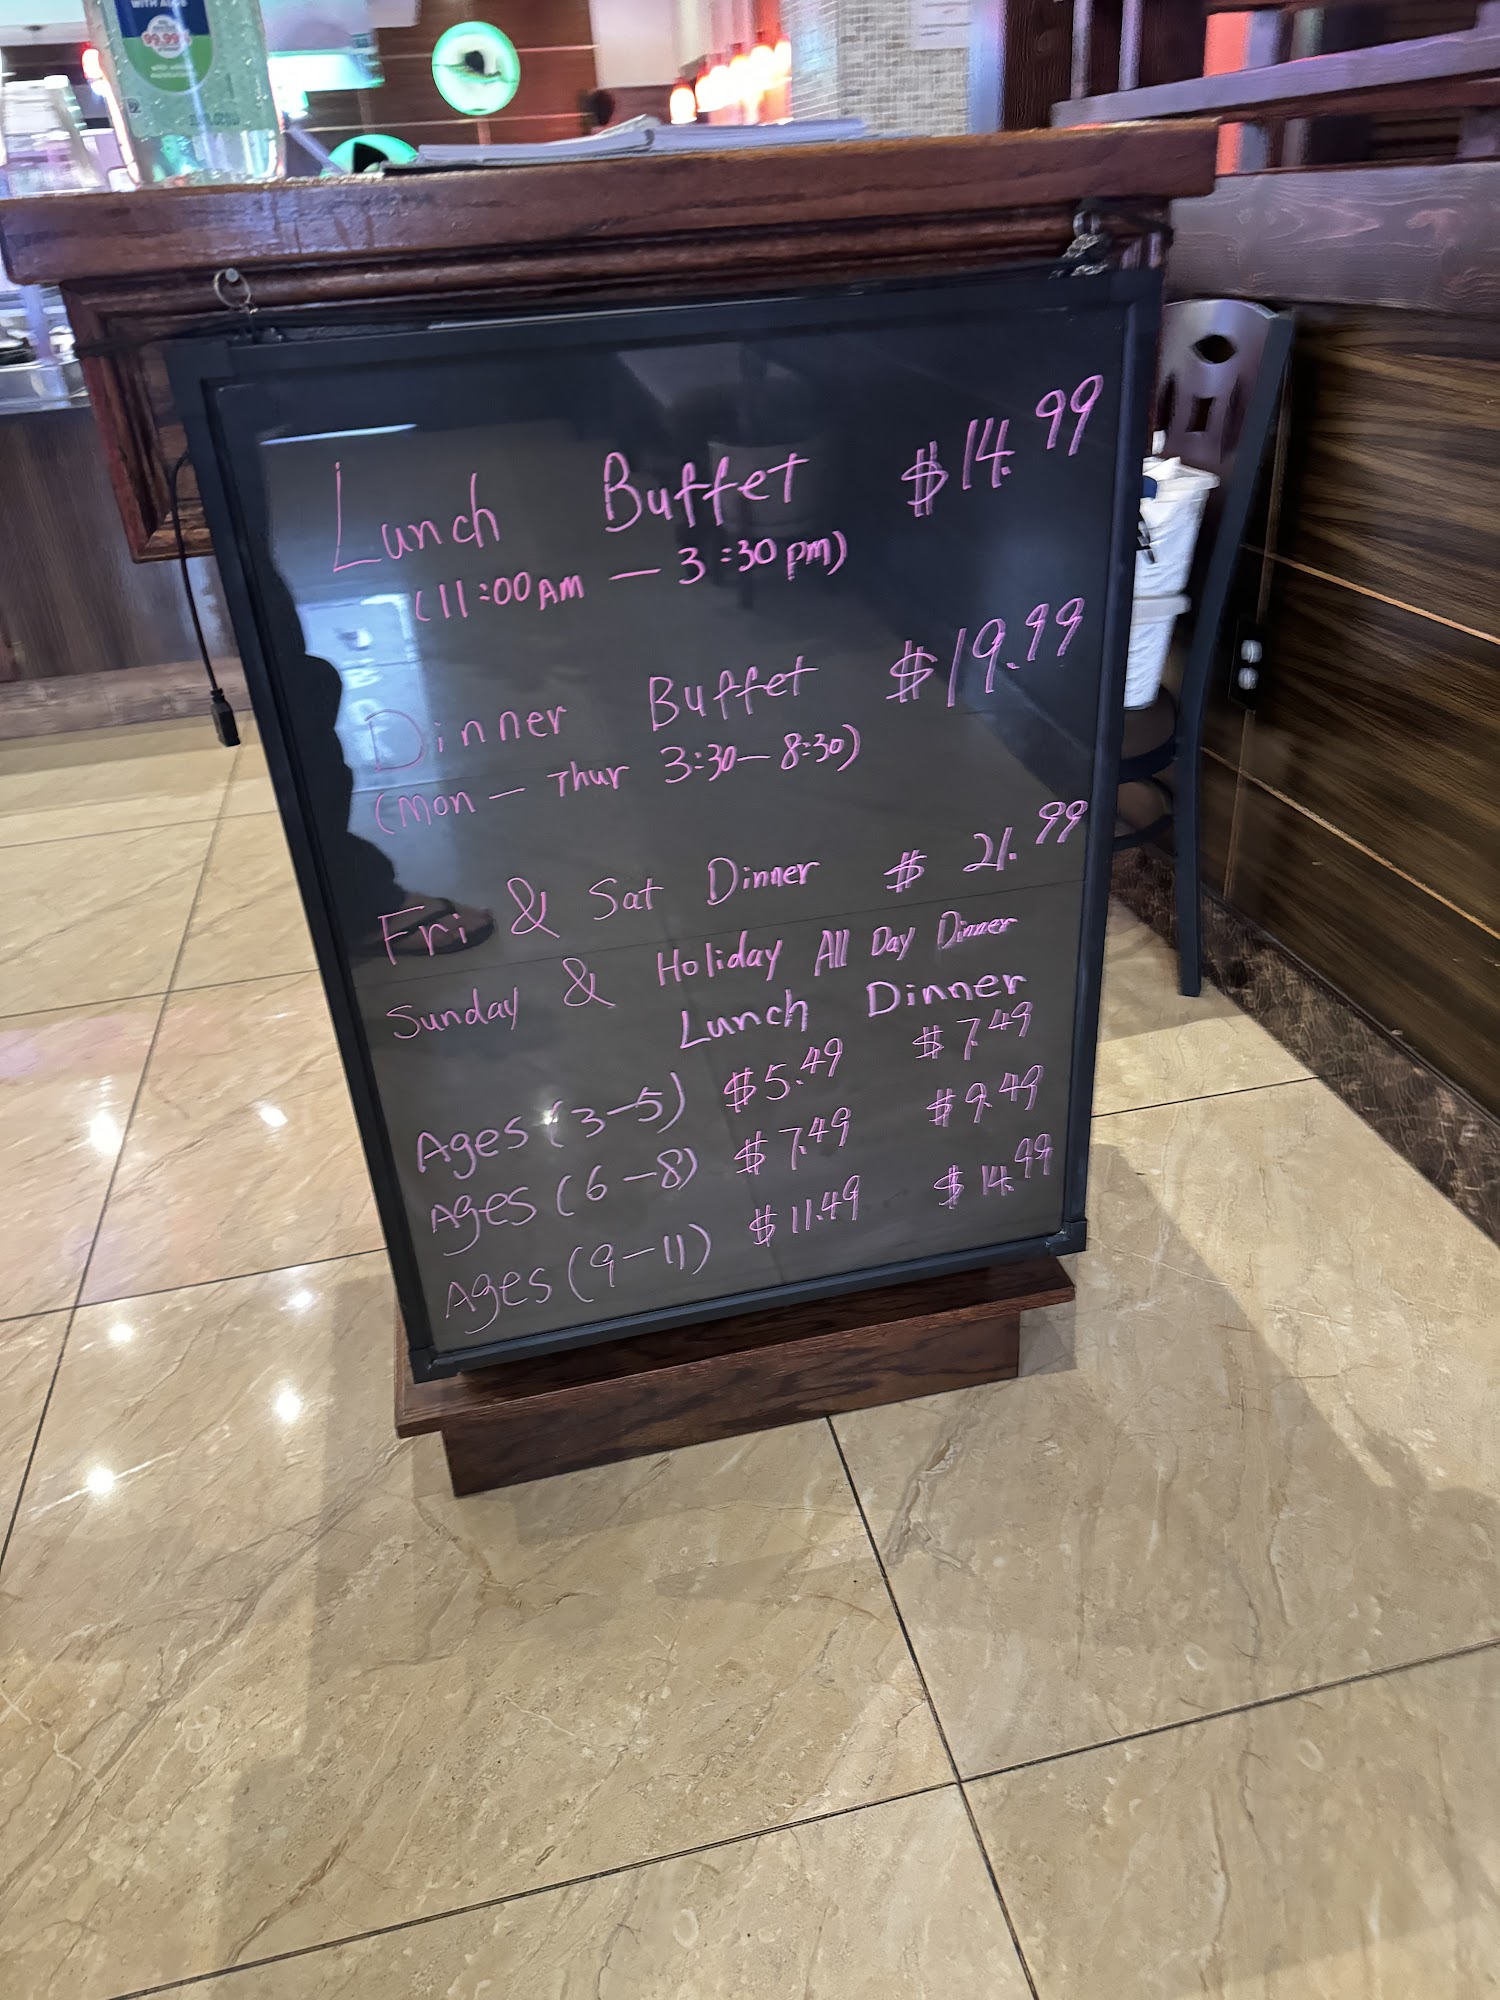 WITH ALOE
99.99%
Lunch Buffet $14.99
(11:00AM — 3:30pm)
Dinner Buffet $19.99
(Mon — Thur 3:30—8:30)
Fri & Sat Dinner $21.99
Sunday & Holiday All Day Dinner
Lunch Dinner
Ages (3-5) $5.49 $7.49
Ages (6-8) $7.49 $9.49
Ages (9-11) $11.49 $14.99